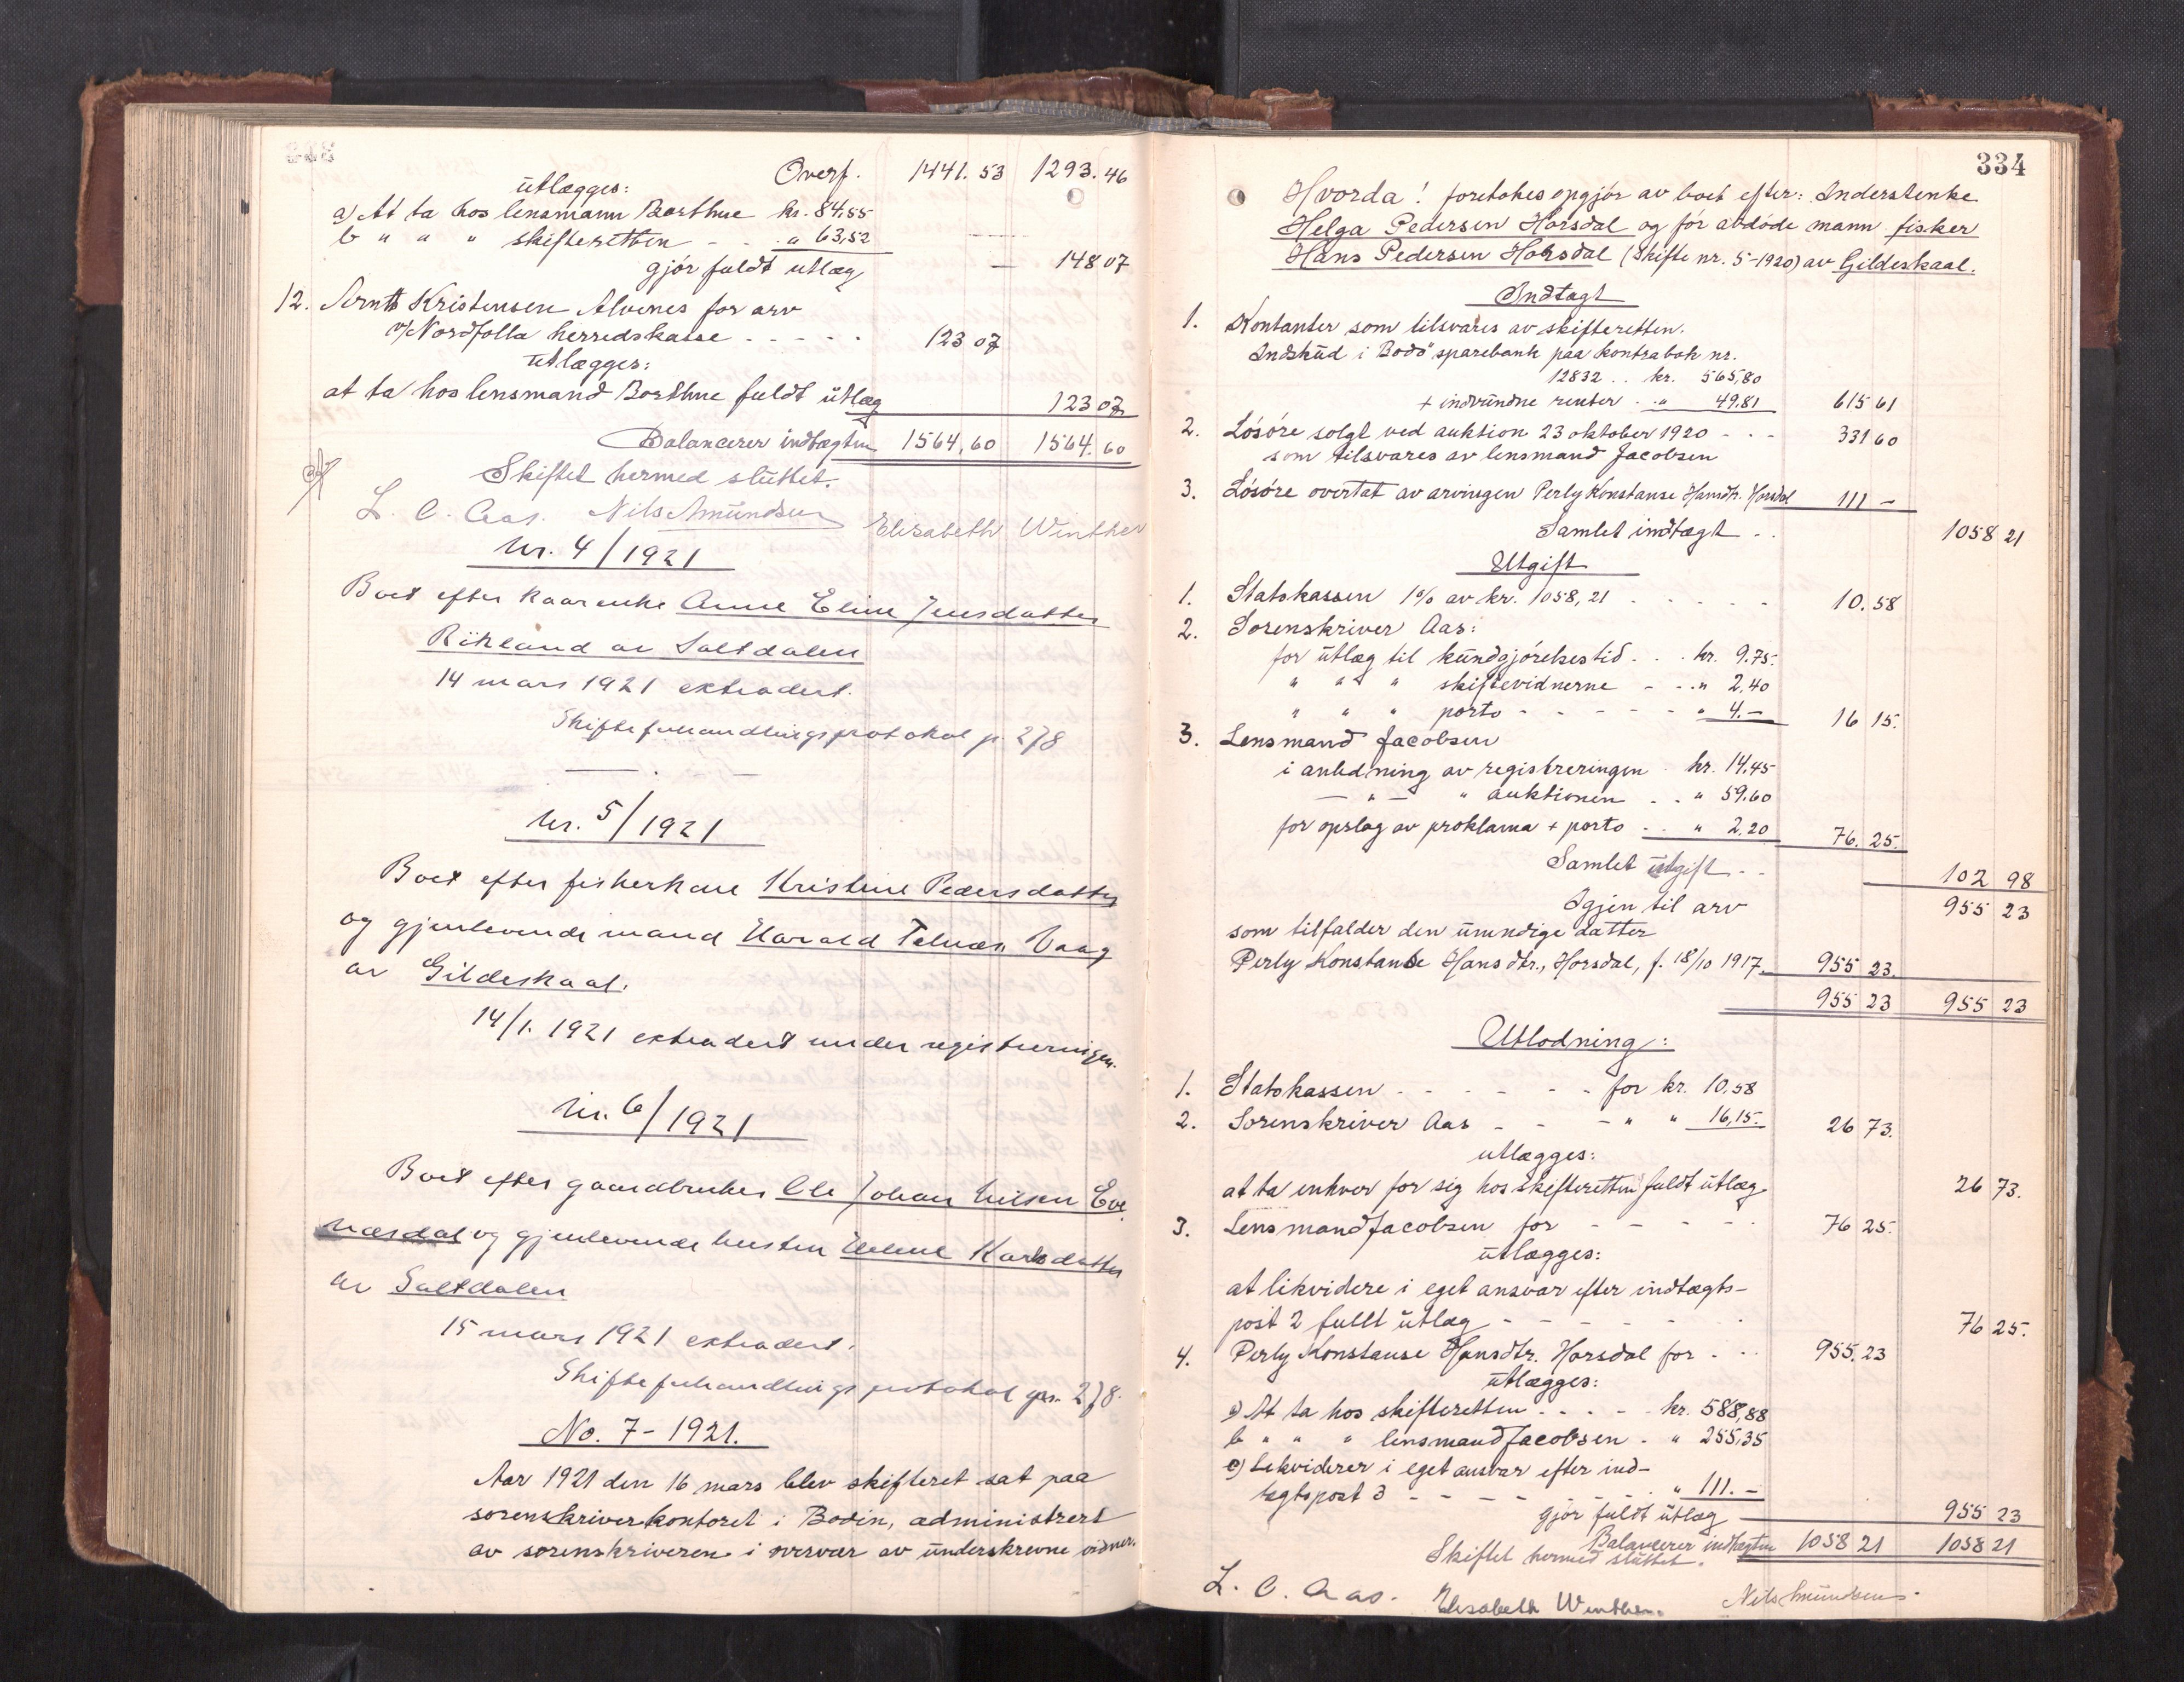 Overf. 1441.53 1293.46
utlægges:
a) At ta hos lensmann Borthne kr. 84,55
b " " " skifteretten - - " 63,52
gjør fuldt utlæg — 148 07
12. Arnt Kristensen Alvenes for arv
v/Nordfolla herredskasse - - - - - 123 07
utlægges:
at ta hos lensmand Borthne fuldt utlæg 123 07
Balancerer indtægten 1564,60 1564.60
Skiftet hermed sluttet.
L. C. Aas. Nils Amundsen Elisabeth Winther
Nr. 4/1921
Boet efter kaarenke Anne Eline Jensdatter
Røkland av Saltdalen
14 mars 1921 extradert.
Skifteforhandlingsprotokol p. 278
Nr. 5/1921
Boet efter fiskerkone Kristine Pedersdatter
og gjenlevende mand Harald Vaag
av Gildeskaal.
14/1. 1921 extradert under registreringen.
Nr. 6/1921
Boet efter gaardbruker Ole Johan Nilsen Eve
næsdal og gjenlevende hustru Karlsdatter
av Saltdalen
15 mars 1921 extradert.
Skifteforhandlingsprotokol 278.
No. 7-1921.
Aar 1921 den 16 mars blev skifteret sat paa
sorenskriverkontoret i Bodin, administrert
av sorenskriveren i overvær av underskrevne vidner.
334
Hvorda! foretokes opgjør av boet efter: Inderstenke
Helga Pedersen Horsdal og før avdøde mann fisker
Hans Pedersen Horsdal (Skifte nr. 5-1920) av Gildeskaal.
Indtægt
1. Kontanter som tilsvares av skifteretten.
Indskud i Bodø sparebank paa kontrabok nr.
12832 .. kr. 565,80
+ indvundne renter . . " 49.81 615 61
2. Løsøre solgt ved auktion 23 oktober 1920 - - - 331 60
som tilsvares av lensmand Jacobsen
3. Løsøre overtat av arvingen Perly Konstanse Hansdtr. Horsdal 111 -
Samlet indtægt . . 1058 21
Utgift
1. Statskassen 1% av kr. 1058,21 - - - - - 10.58
2. Sorenskriver Aas:
for utlæg til kundgjørelsestid . . . kr. 9.75.
" " " skiftevidnerne - - . " 2,40
" " " porto - - - - - " 4.- 16 15.
3. Lensmand Jacobsen
i anledning av registreringen . kr. 14.45
— " — " auktionen . . " 59.60
for opslag av proklama + porto . . " 2,20 76. 25.
Samlet utgift . . 102 98
Igjen til arv 955 23
som tilfalder den umyndige datter
Perly Konstanse Hansdtr., Horsdal, f. 18/10 1917. 955 23.
955 23 955 23
Utlodning:
1. Statskassen - - - - - - for kr. 10,58
2. Sorenskriver Aas - - - " " 16,15. 26 73.
utlægges:
at ta enhver for sig hos skifteretten fuldt utlæg. 26 73.
3. Lensmand Jacobsen for - - - - - 76 25.
utlægges:
at likvidere i eget ansvar efter indtægts-
post 2 fullt utlæg - - - - - - 76 25.
4. Perly Konstanse Hansdtr. Horsdal for - - - 955.23
utlægges:
a) At ta hos skifteretten . . . - - kr. 588,88
b " " " lensmand Jacobsen . " 255,35
c) Likviderer i eget ansvar efter ind-
tægtspost 3 - - - - - - " 111.-
gjør fuldt utlæg 955 23
Balancerer indtægten 1058 21 1058 21
Skiftet hermed sluttet.
L. C. Aas. Elisabeth Winther. Nils Amundsen.